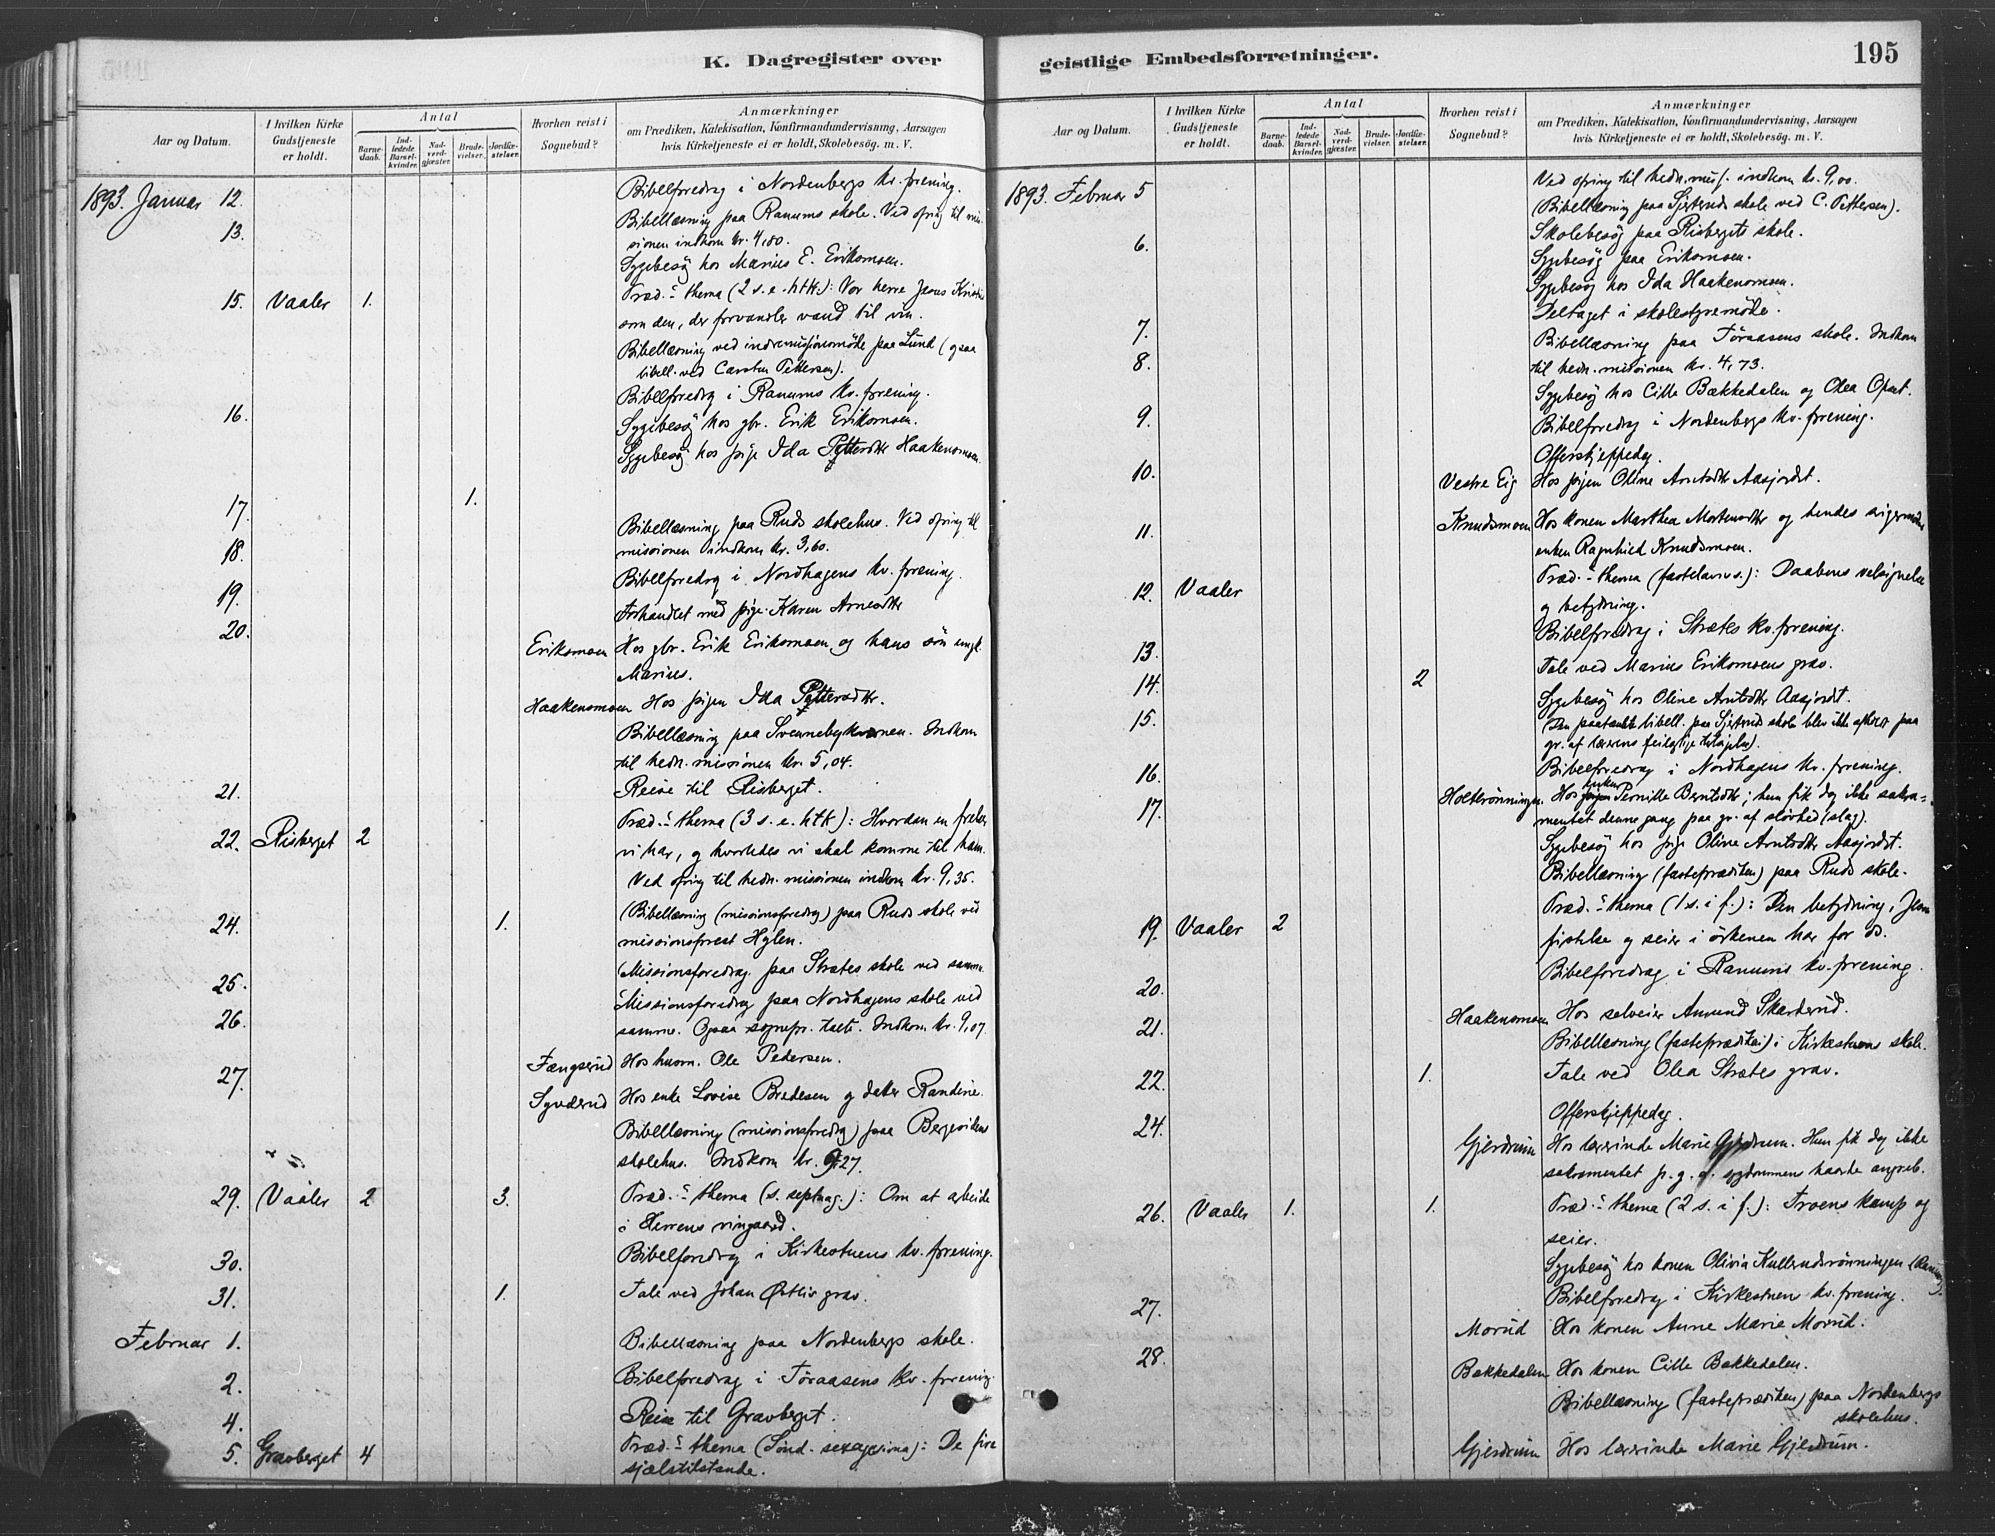 K. Dagregister over
Aar og Datum.
I hvilken Kirke Gudstjeneste er holdt.
Antal
Barnedaab.
Indledede Barselkvinder.
Nadverdgjæster.
Brudevielser.
Jordfæstelser.
Hvorhen reist i Sognebud?
Anmærkninger
om Prædiken, Katekisation, Konfirmandundervisning, Aarsagen
hvis Kirketjeneste ei er holdt, Skolebesøg. m. V.
1893. Januar 12. Bibelforedrag i Nordenbergs kv. forening.
13. Bibellæsning paa Ranums skole. Ved ofring til mis-
sionen indkom kr. 4,80.
Sygebesøg hos Marius E. Eriksmoen.
15. Vaaler 1. Præd.- thema (2 s. e. h.t.k.): Vor herre Jesus Kristus
som den, der forvandler vand til vin.
Bibellæsning ved indremissionsmøde paa Lund (ogsaa
bibell. ved Carsten Pettersen).
16. Bibelforedrag i Ranums kv. forening.
Sygebesøg hos gbr. Erik Eriksmoen.
Sygebesøg hos pige Ida Pettersdtr Haakensmoen.
17. 1.
18. Bibellæsning paa Ruds skolehus. Ved ofring til
missionen indkom kr. 3,60.
19. Bibelforedrag i Nordhagens kv. forening.
20. Forhandlet med pige Karen Arnesdtr
Eriksmoen Hos gbr. Erik Eriksmoen og hans søn ungk.
Marius.
Haakensmoen Hos pigen Ida Pettersdtr.
Bibellæsning paa Svennebykværnen. Indkom
til hedn. missionen kr. 5,04.
21. Reise til Risberget.
22. Risberget 2 Præd.- thema (3 s. e. h.t.k): Hvordan en frelser
vi har, og hvorledes vi skal komme til ham.
Ved ofring til hedn. missionen indkom kr. 9,35.
24. 1. (Bibellæsning (missionsforedrag) paa Ruds skole ved
missionsprest Hylen.
25. (Missionsforedrag paa Strætes skole ved samme.
26. Missionsforedrag paa Nordhagens skole ved
samme. Ogsaa sognepr. talte. Indkom kr. 9,07.
27. Fængserud Hos husm. Ole Pedersen.
Syverud Hos enke Lovise Bredesen og datter Randine.
Bibellæsning (missionsforedrag) paa Bergesvikens
skolehus. Indkom kr. 9,27.
29. Vaaler 2 3. Præd.- thema (s. septuag.): Om at arbeide
i Herrens vingaard.
30. Bibelforedrag i Kirkestuens kv. forening.
31. 1. Tale ved Johan Østlis grav.
Februar 1. Bibellæsning paa Nordenbergs skole.
2. Bibelforedrag i Føraasens kv. forening.
4. Reise til Gravberget.
5. Gravberget 4 Præd.- thema (Sønd. sexagesima): De fire
sjælstilstande.
geistlige Embedsforretninger.
195
Aar og Datum.
I hvilken Kirke Gudstjeneste er holdt.
Antal
Barnedaab.
Indledede Barselkvinder.
Nadverdgjæster.
Brudevielser.
Jordfæstelser.
Hvorhen reist i Sognebud?
Anmærkninger
om Prædiken, Katekisation, Konfirmandundervisning, Aarsagen
hvis Kirketjeneste ei er holdt, Skolebesøg. m. V.
1893. Februar 5 Ved ofring til hedn. miss. indkom kr. 9,00.
(Bibellæsning paa Sjøteruds skole ved C. Pettersen).
6. Skolebesøg paa Risbergets skole.
Sygebesøg paa Eriksmoen.
Sygebesøg hos Ida Haakensmoen.
7. Deltaget i skolestyremøde.
8. Bibellæsning paa Føraasens skole. Indkom
til hedn. missionen kr. 4,73.
Sygebesøg hos Cille Bækkedalen og Olea Opset.
9. Bibelforedrag i Nordenbergs kv. forening.
10. Offerskjeppedag.
Vestre Eig Hos pigen Oline Arntsdtr Aasjordet.
11. Knudsmoen Hos konen Marthea Mortensdtr og hendes svigermoder
enken Ragnhild Knudsmoen.
12. Vaaler Præd.- thema (fastelavns.): Daabens velsignelse
og betydning.
13. Bibelforedrag i Strætes kv. forening.
14. 2 Tale ved Marius Eriksmoens grav.
15. Sygebesøg hos Oline Arntsdtr Aasjordet.
(Den paatænkte bibell. paa Sjøterud skole blev ikke afholdt paa
gr. af lærerens feilagtige tilsigelse).
16. Bibelforedrag i Nordhagens kv. forening.
17. Holterønningen Hos enken Pernille Berntsdtr; hun fik dog ikke sakra-
mentet denne gang paa gr. af sløvhed (slag).
Sygebesøg hos pige Oline Arntsdtr Aasjordet.
Bibellæsning (fasteprædiken) paa Ruds skole.
19. Vaaler 2 Præd.- thema (1 s. i f.): Den betydning, Jesu
fristelse og seier i ørkenen har for os.
20. Bibelforedrag i Ranums kv. forening.
21. Haakensmoen Hos selveier Amund Skarderud.
Bibellæsning (fasteprædiken) i Kirkestuens skole.
22. 1. Tale ved Olea Strætes grav.
24. Offerskjeppedag.
Gjerdrum Hos lærerinde Marie Gjerdrum. Hun fik dog ikke
sakramentet p. g. a. sygdommens haarde angreb.
26. Vaaler 1. 1. Præd.- thema (2 s. i f.): Troens kamp og
seier.
Sygebesøg hos konen Olivia Kullerudsrønningen
27. Bibelforedrag i Kirkestuen kv. forening.
Morud Hos konen Anne Marie Morud.
28. Bakkedalen Hos konen Cille Bakkedalen.
Bibellæsning (fasteprædiken) paa Nordenbergs
skolehus.
Gjerdrum Hos lærerinde Marie Gjerdrum.